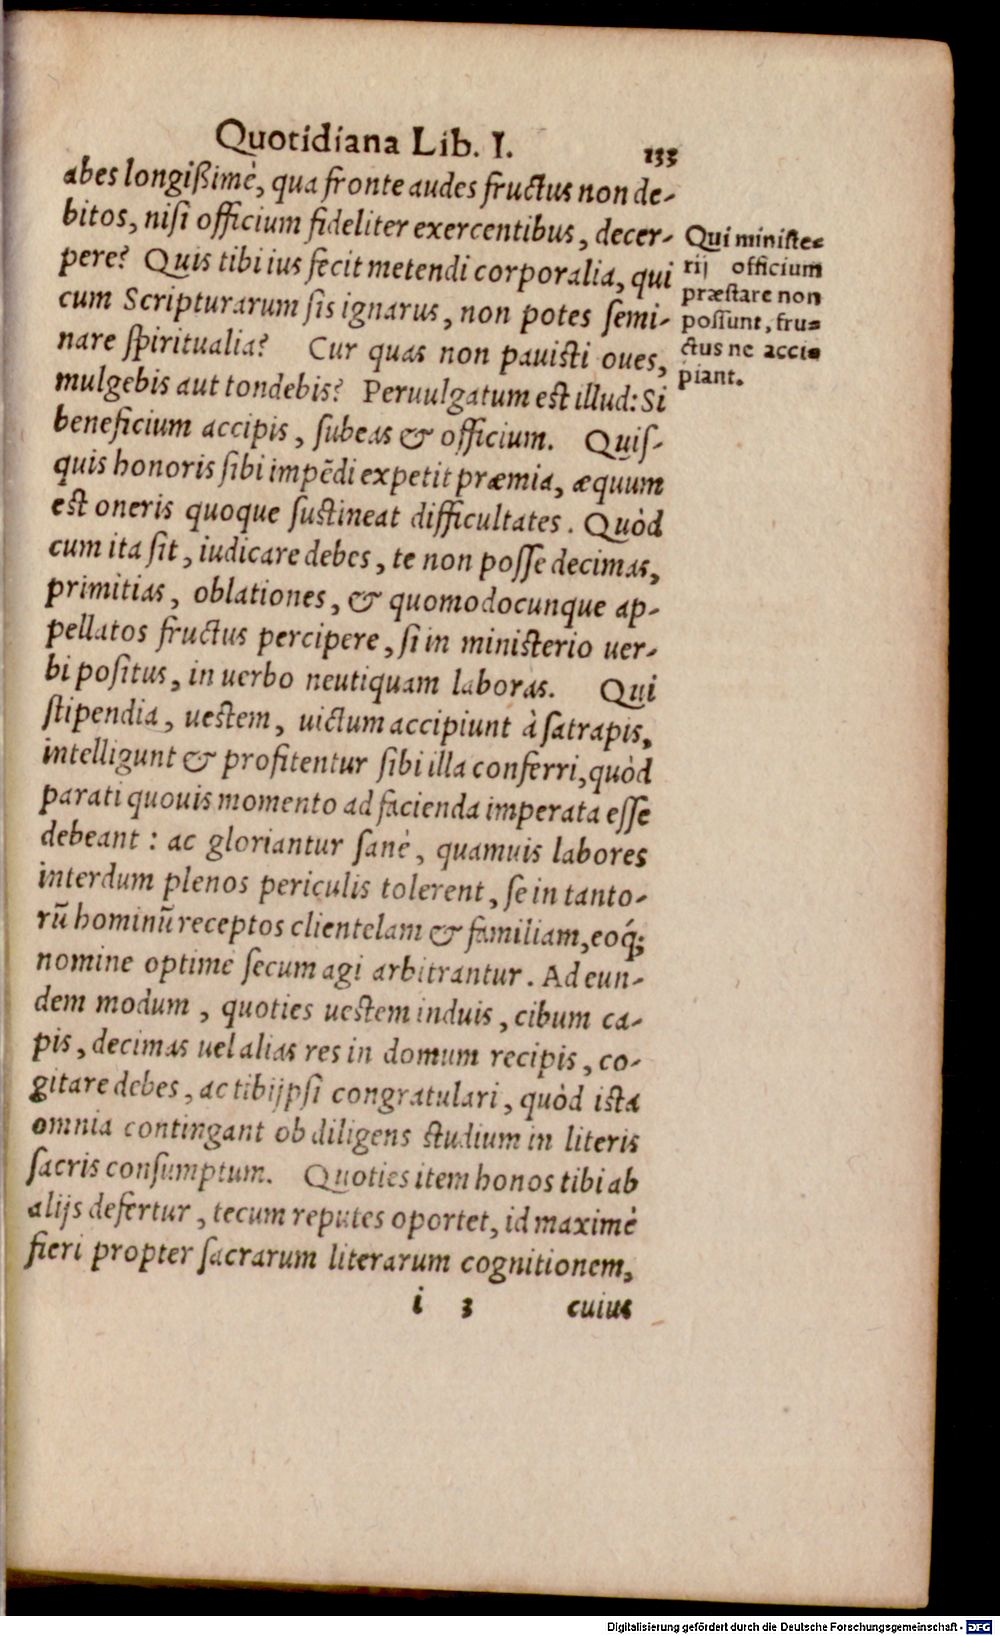 Quotidiana Lib. I. 133
abes longißimè, qua fronte audes fructus non de-
bitos, nisi officium fideliter exercentibus, decer-
pere? Quis tibi ius fecit metendi corporalia, qui
cum Scripturarum sis ignarus, non potes semi-
nare spiritualia? Cur quas non pauisti oues,
mulgebis aut tondebis? Peruulgatum est illud: Si
beneficium accipis, subeas & officium. Quis-
quis honoris sibi impēdi expetit præmia, æquum
est oneris quoque sustineat difficultates. Quòd
cum ita sit, iudicare debes, te non posse decimas,
primitias, oblationes, & quomodocunque ap-
pellatos fructus percipere, si in ministerio uer-
bi positus, in uerbo neutiquam laboras. Qui
stipendia, uestem, uictum accipiunt à satrapis,
intelligunt & profitentur sibi illa conferri, quòd
parati quouis momento ad facienda imperata esse
debeant: ac gloriantur sanè, quamuis labores
interdum plenos periculis tolerent, se in tanto-
rū hominū receptos clientelam & familiam, eoq́;
nomine optimè secum agi arbitrantur. Ad eun-
dem modum, quoties uestem induis, cibum ca-
pis, decimas uel alias res in domum recipis, co-
gitare debes, ac tibijpsi congratulari, quòd ista
omnia contingant ob diligens studium in literis
sacris consumptum. Quoties item honos tibi ab
alijs defertur, tecum reputes oportet, id maximè
fieri propter sacrarum literarum cognitionem,
i 3 cuius
Qui ministe-
rij officium
præstare non
possunt, fru-
ctus ne acci-
piant.
Digitalisierung gefördert durch die Deutsche Forschungsgemeinschaft - DFG